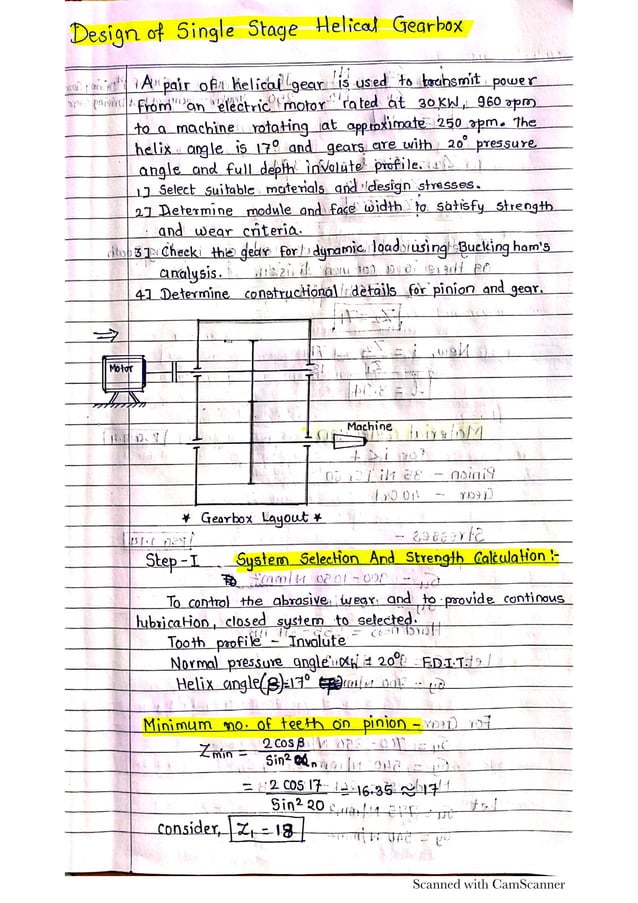 Design of Single Stage Helical Gearbox
A pair of helical gear is used to transmit power
from an electric motor rated at 30KW, 960 rpm
to a machine rotating at approximate 250 rpm. The
helix angle is 17° and gears are with 20° pressure
angle and full depth involute profile.
1] Select suitable materials and design stresses.
2] Determine module and face width to satisfy strength
and wear criteria.
3] Check the gear for dynamic load using Bucking ham's
analysis.
4] Determine constructional details for pinion and gear.
Motor
Machine
* Gearbox Layout *
Step-I System Selection And Strength Calculation :-
To control the abrasive wear and to provide continous
lubrication, closed system to selected.
Tooth profile - Involute
Normal pressure angle αn = 20° F.D.I.T.
Helix angle(β)=17°
Minimum no. of teeth on pinion -
Zmin = 2 cos β / Sin² αn
= 2 cos 17 / Sin² 20 = 16.35 ≈ 17
consider, Z₁ = 18
Scanned with CamScanner